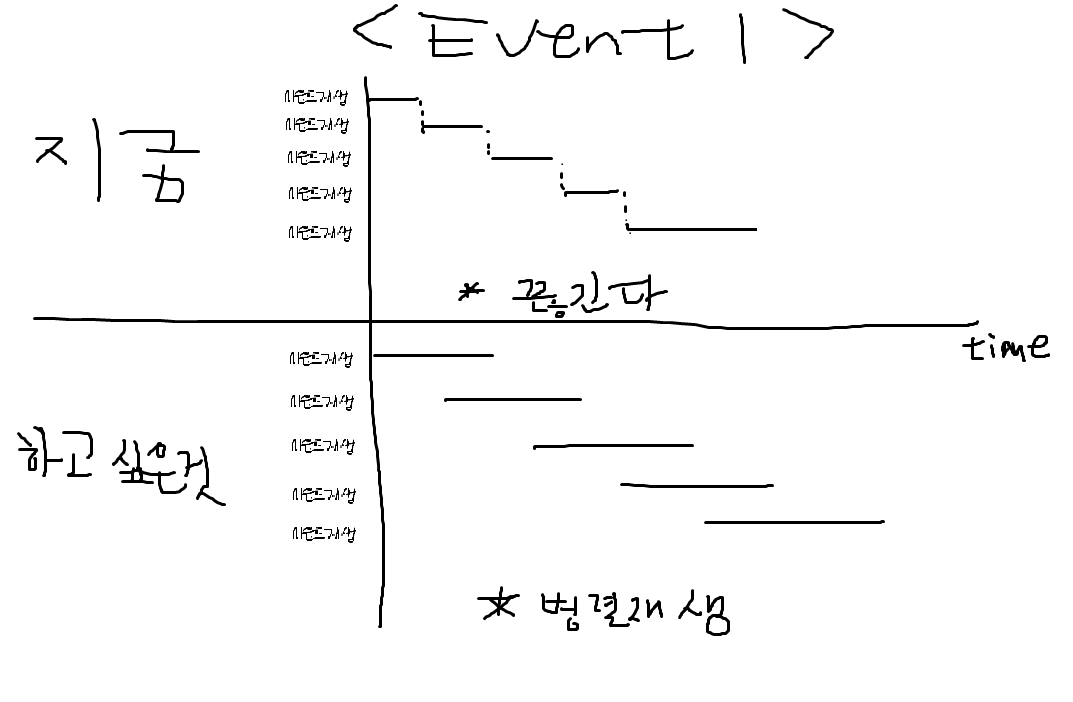 < Event 1 >
사운드재생
사운드재생
지금
사운드재생
사운드재생
사운드재생
* 끊긴다
time
사운드재생
사운드재생
하고 싶은것
사운드재생
사운드재생
사운드재생
* 병렬재생